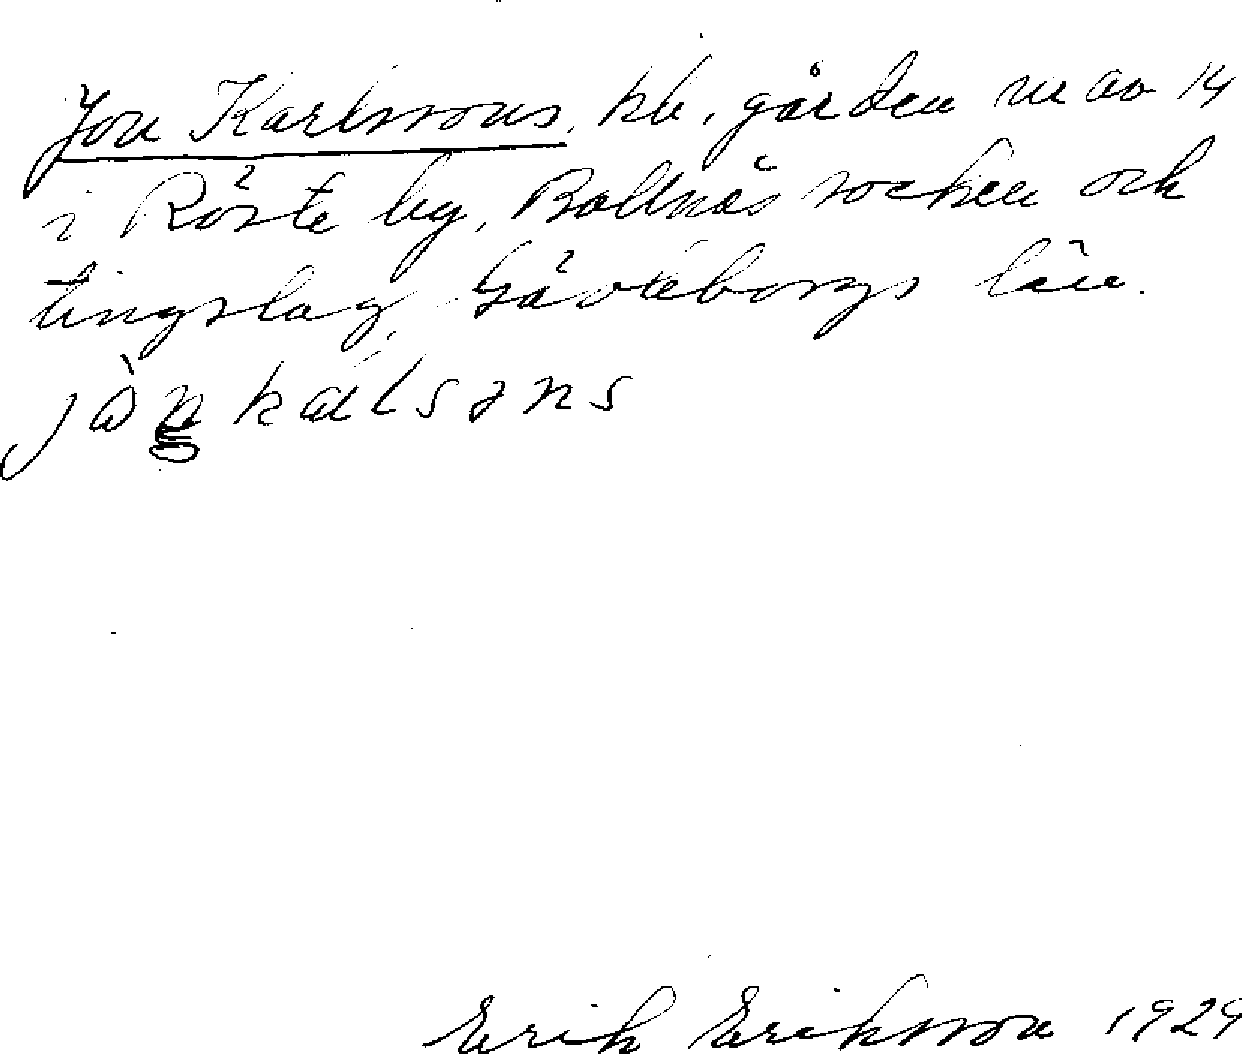 Jon Karlssons, kb. gården m av 14
i Röste by, Bollnäs socken och
tingslag, Gävleborgs län.
jòn kálsəns
Erik Eriksson 1929